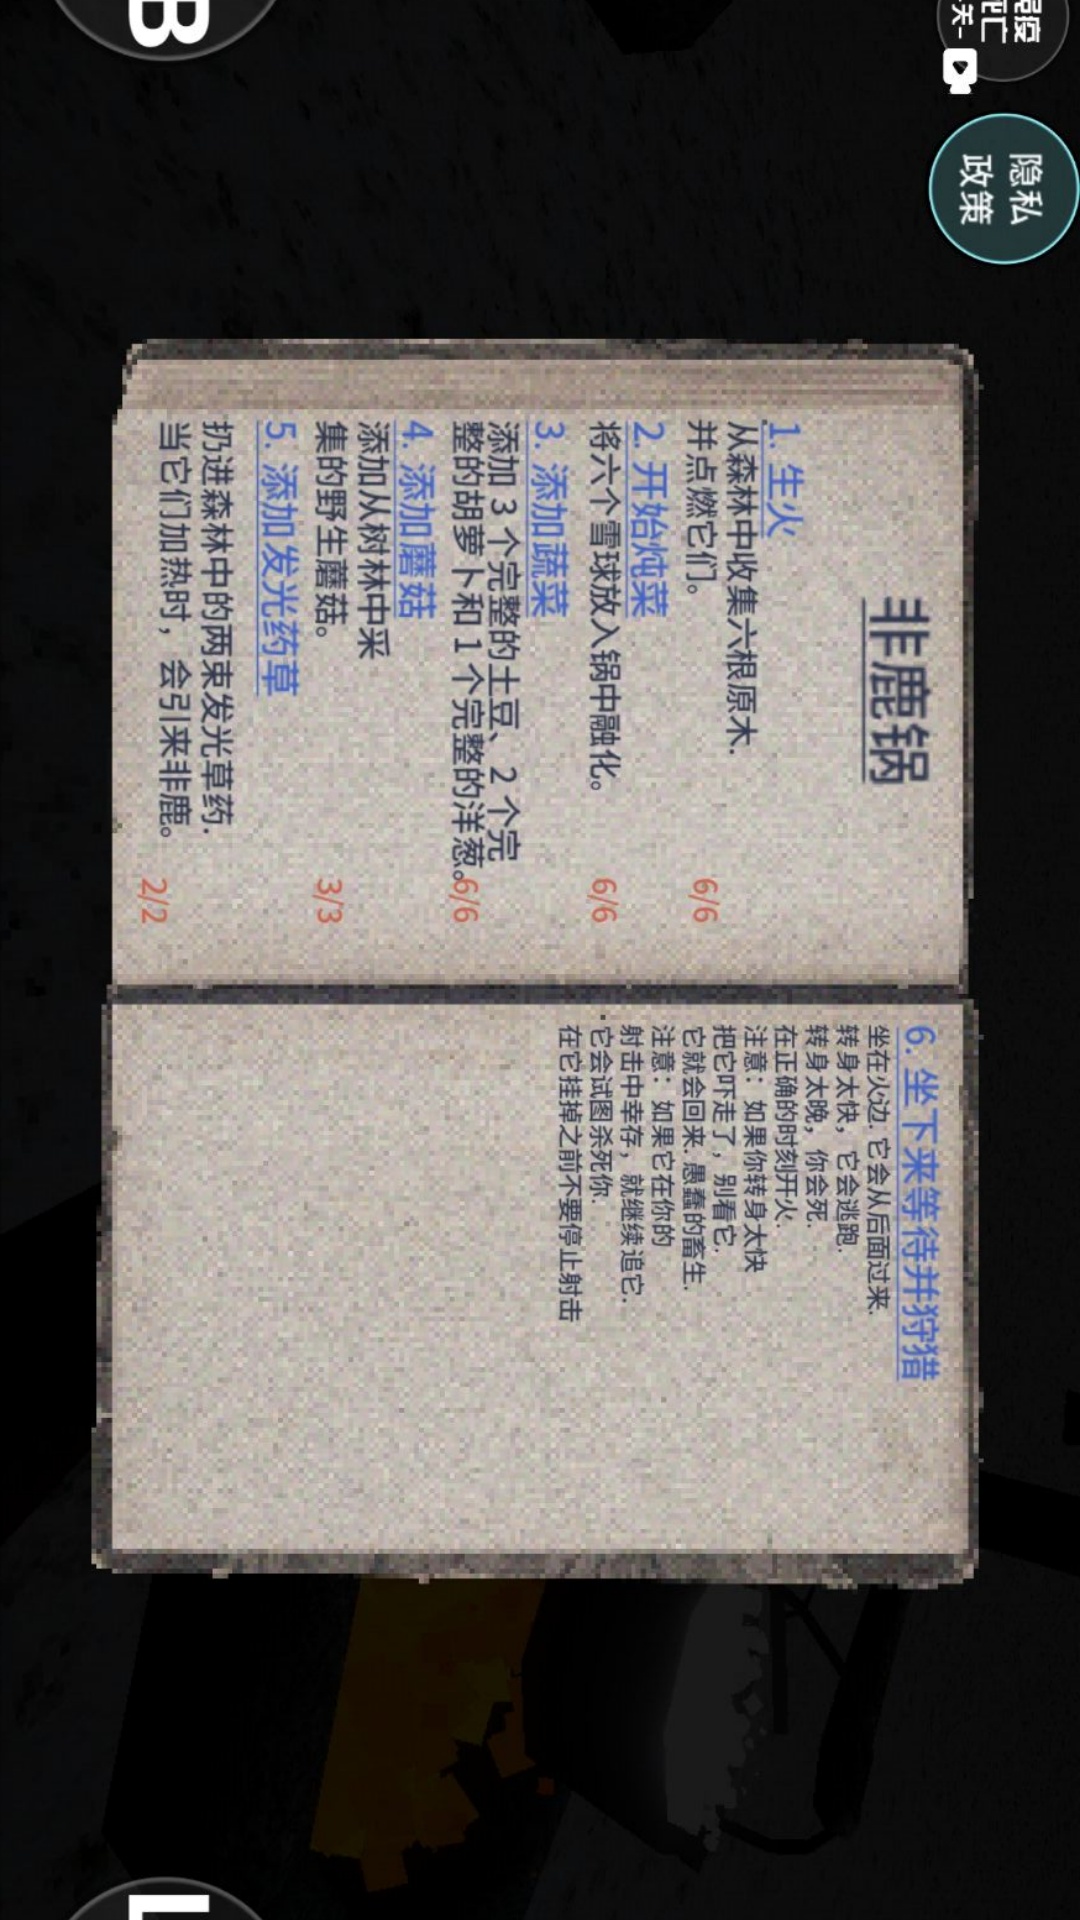 B
死亡
隐私
政策
非鹿锅
1. 生火
从森林中收集六根原木.
并点燃它们。
6/6
2. 开始炖菜
将六个雪球放入锅中融化。
6/6
3. 添加蔬菜
添加 3 个完整的土豆、2 个完
整的胡萝卜和 1 个完整的洋葱。
6/6
4. 添加蘑菇
添加从树林中采
集的野生蘑菇。
3/3
5. 添加发光药草
扔进森林中的两束发光草药.
当它们加热时，会引来非鹿。
2/2
6. 坐下来等待并狩猎
坐在火边. 它会从后面过来.
转身太快，它会逃跑.
转身太晚，你会死.
在正确的时刻开火.
注意：如果你转身太快
把它吓走了，别看它.
它就会回来. 愚蠢的畜生.
注意：如果它在你的
射击中幸存，就继续追它.
它会试图杀死你.
在它挂掉之前不要停止射击
L